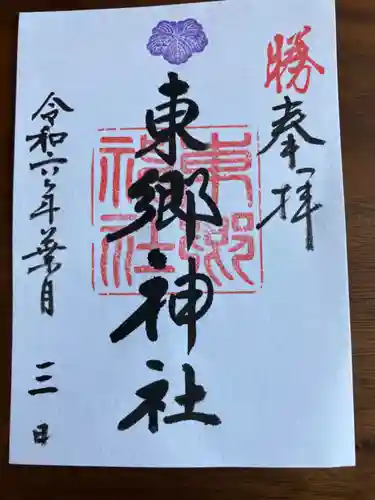 勝
奉拝
東郷神社
東郷
神社
令和六年葉月
三日